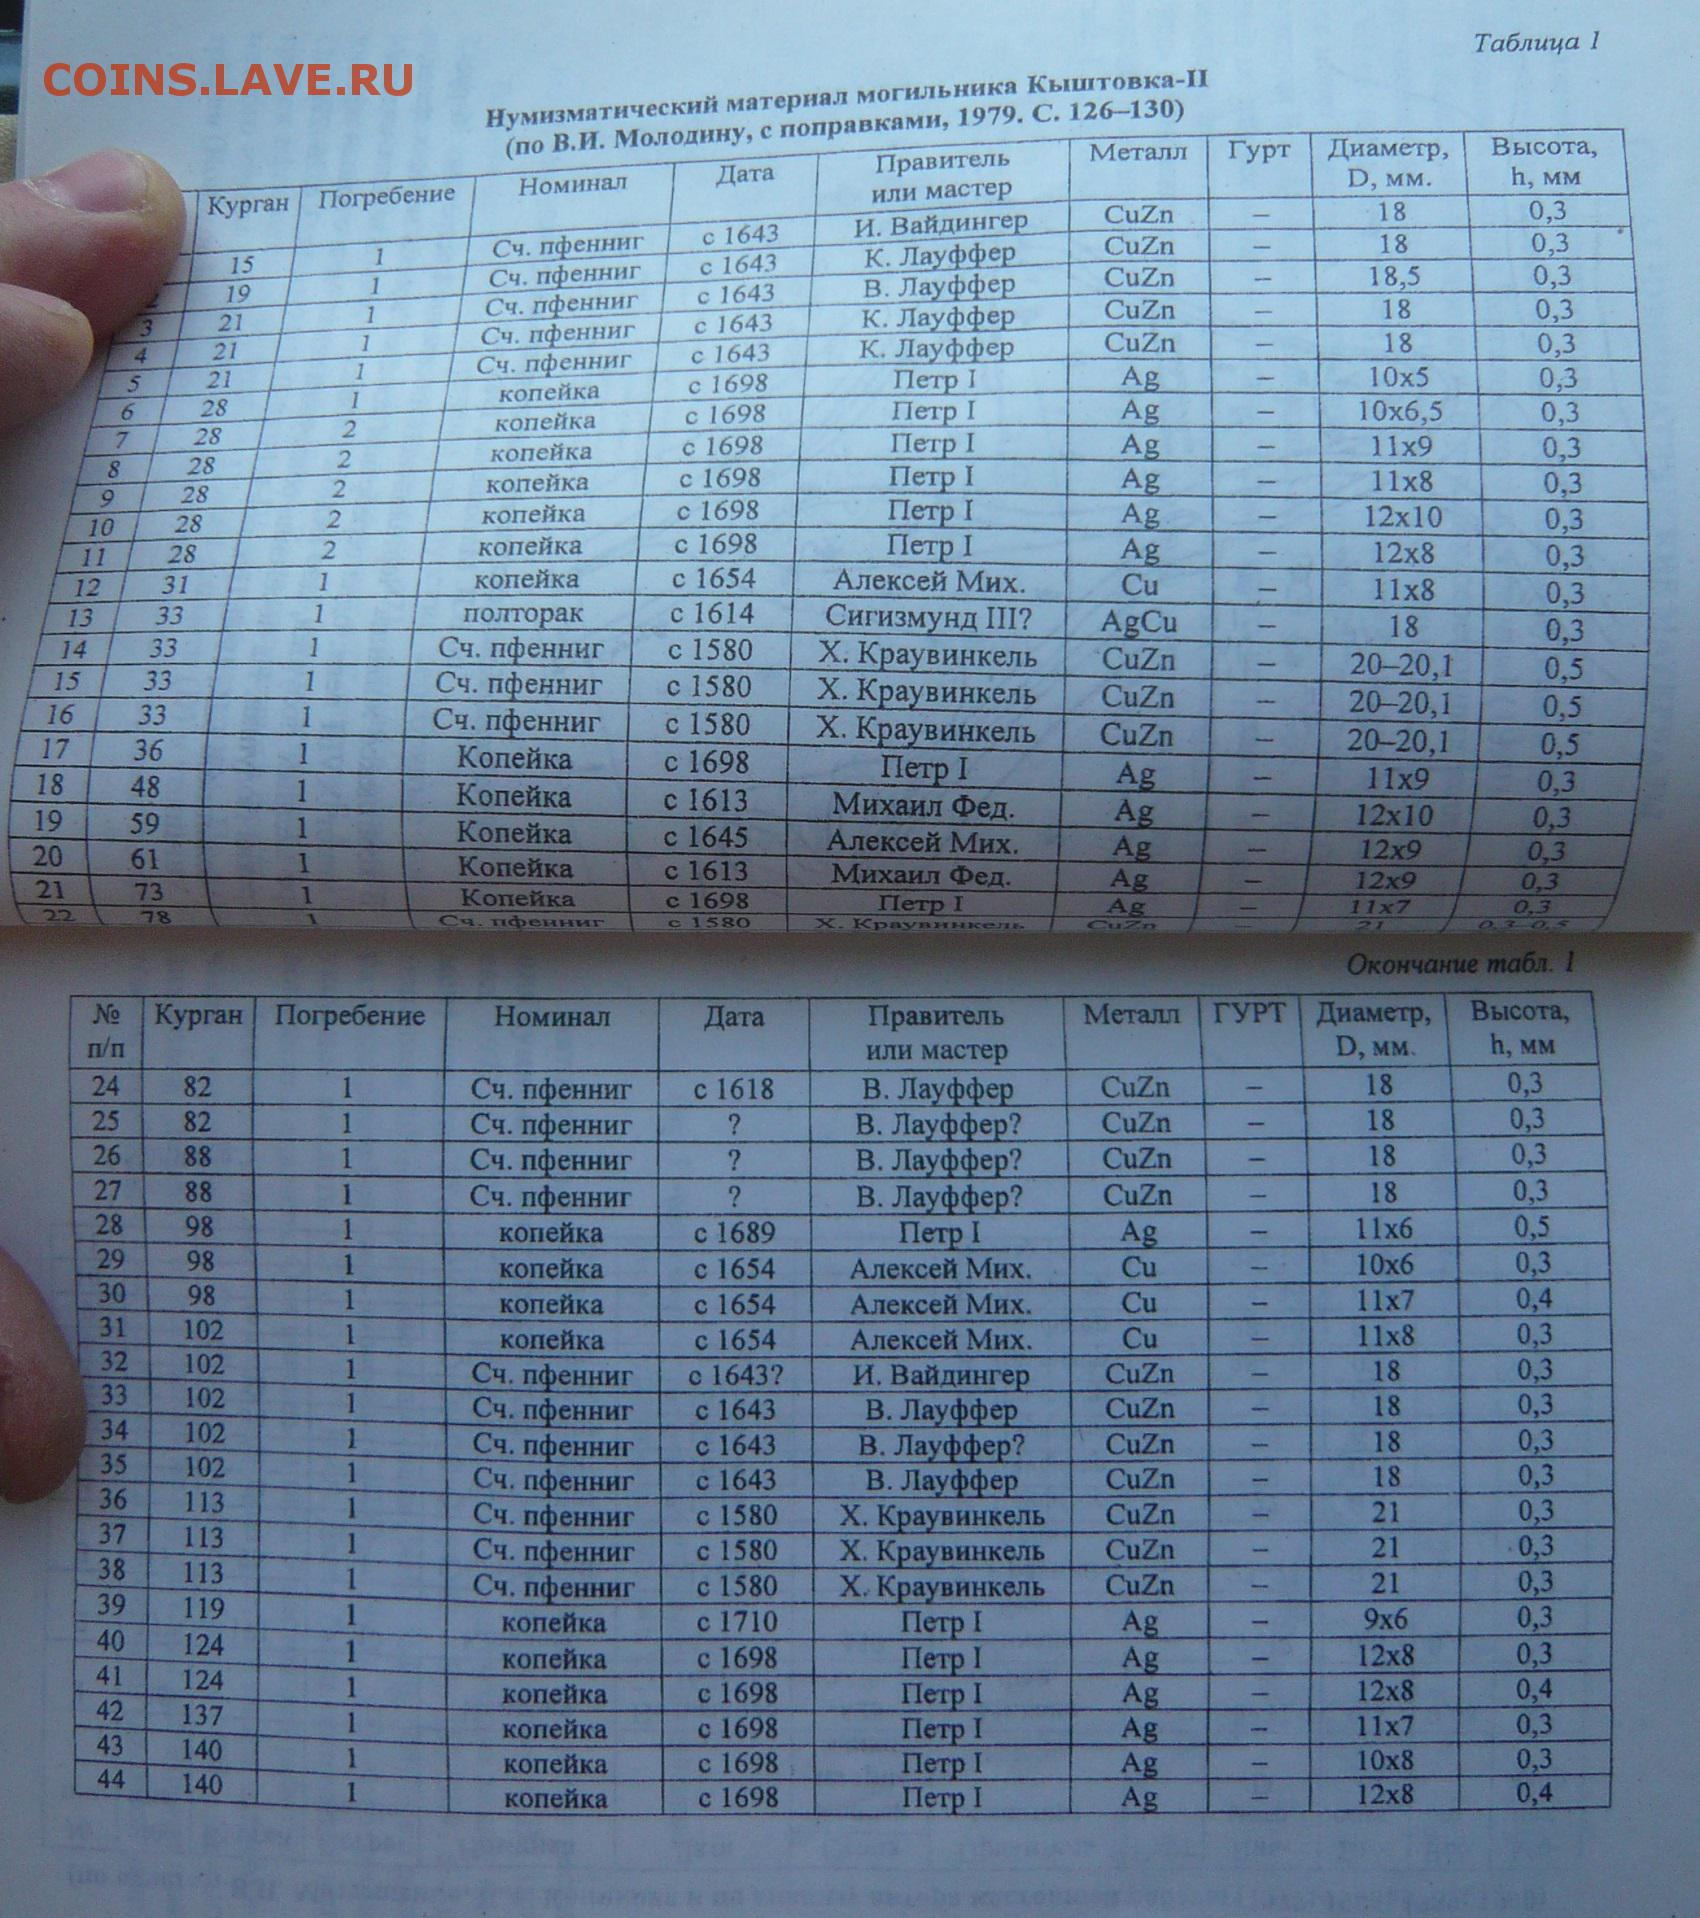 COINS.LAVE.RU
Таблица 1
Нумизматический материал могильника Кыштовка-II
(по В.И. Молодину, с поправками, 1979. С. 126–130)
Курган Погребение Номинал Дата Правитель или мастер Металл Гурт Диаметр, D, мм. Высота, h, мм
15 1 Сч. пфенниг с 1643 И. Вайдингер CuZn – 18 0,3
2 19 1 Сч. пфенниг с 1643 К. Лауффер CuZn – 18 0,3
3 21 1 Сч. пфенниг с 1643 В. Лауффер CuZn – 18,5 0,3
4 21 1 Сч. пфенниг с 1643 К. Лауффер CuZn – 18 0,3
5 21 1 Сч. пфенниг с 1643 К. Лауффер CuZn – 18 0,3
6 28 1 копейка с 1698 Петр I Ag – 10х5 0,3
7 28 2 копейка с 1698 Петр I Ag – 10х6,5 0,3
8 28 2 копейка с 1698 Петр I Ag – 11х9 0,3
9 28 2 копейка с 1698 Петр I Ag – 11х8 0,3
10 28 2 копейка с 1698 Петр I Ag – 12х10 0,3
11 28 2 копейка с 1698 Петр I Ag – 12х8 0,3
12 31 1 копейка с 1654 Алексей Мих. Cu – 11х8 0,3
13 33 1 полторак с 1614 Сигизмунд III? AgCu – 18 0,3
14 33 1 Сч. пфенниг с 1580 Х. Краувинкель CuZn – 20–20,1 0,5
15 33 1 Сч. пфенниг с 1580 Х. Краувинкель CuZn – 20–20,1 0,5
16 33 1 Сч. пфенниг с 1580 Х. Краувинкель CuZn – 20–20,1 0,5
17 36 1 Копейка с 1698 Петр I Ag – 11х9 0,3
18 48 1 Копейка с 1613 Михаил Фед. Ag – 12х10 0,3
19 59 1 Копейка с 1645 Алексей Мих. Ag – 12х9 0,3
20 61 1 Копейка с 1613 Михаил Фед. Ag – 12х9 0,3
21 73 1 Копейка с 1698 Петр I Ag – 11х7 0,3
22 78 1 Сч. пфенниг с 1580 Х. Краувинкель CuZn – 21 0,3–0,5
Окончание табл. 1
№ п/п Курган Погребение Номинал Дата Правитель или мастер Металл ГУРТ Диаметр, D, мм. Высота, h, мм
24 82 1 Сч. пфенниг с 1618 В. Лауффер CuZn – 18 0,3
25 82 1 Сч. пфенниг ? В. Лауффер? CuZn – 18 0,3
26 88 1 Сч. пфенниг ? В. Лауффер? CuZn – 18 0,3
27 88 1 Сч. пфенниг ? В. Лауффер? CuZn – 18 0,3
28 98 1 копейка с 1689 Петр I Ag – 11х6 0,5
29 98 1 копейка с 1654 Алексей Мих. Cu – 10х6 0,3
30 98 1 копейка с 1654 Алексей Мих. Cu – 11х7 0,4
31 102 1 копейка с 1654 Алексей Мих. Cu – 11х8 0,3
32 102 1 Сч. пфенниг с 1643? И. Вайдингер CuZn – 18 0,3
33 102 1 Сч. пфенниг с 1643 В. Лауффер CuZn – 18 0,3
34 102 1 Сч. пфенниг с 1643 В. Лауффер? CuZn – 18 0,3
35 102 1 Сч. пфенниг с 1643 В. Лауффер CuZn – 18 0,3
36 113 1 Сч. пфенниг с 1580 Х. Краувинкель CuZn – 21 0,3
37 113 1 Сч. пфенниг с 1580 Х. Краувинкель CuZn – 21 0,3
38 113 1 Сч. пфенниг с 1580 Х. Краувинкель CuZn – 21 0,3
39 119 1 копейка с 1710 Петр I Ag – 9х6 0,3
40 124 1 копейка с 1698 Петр I Ag – 12х8 0,3
41 124 1 копейка с 1698 Петр I Ag – 12х8 0,4
42 137 1 копейка с 1698 Петр I Ag – 11х7 0,3
43 140 1 копейка с 1698 Петр I Ag – 10х8 0,3
44 140 1 копейка с 1698 Петр I Ag – 12х8 0,4